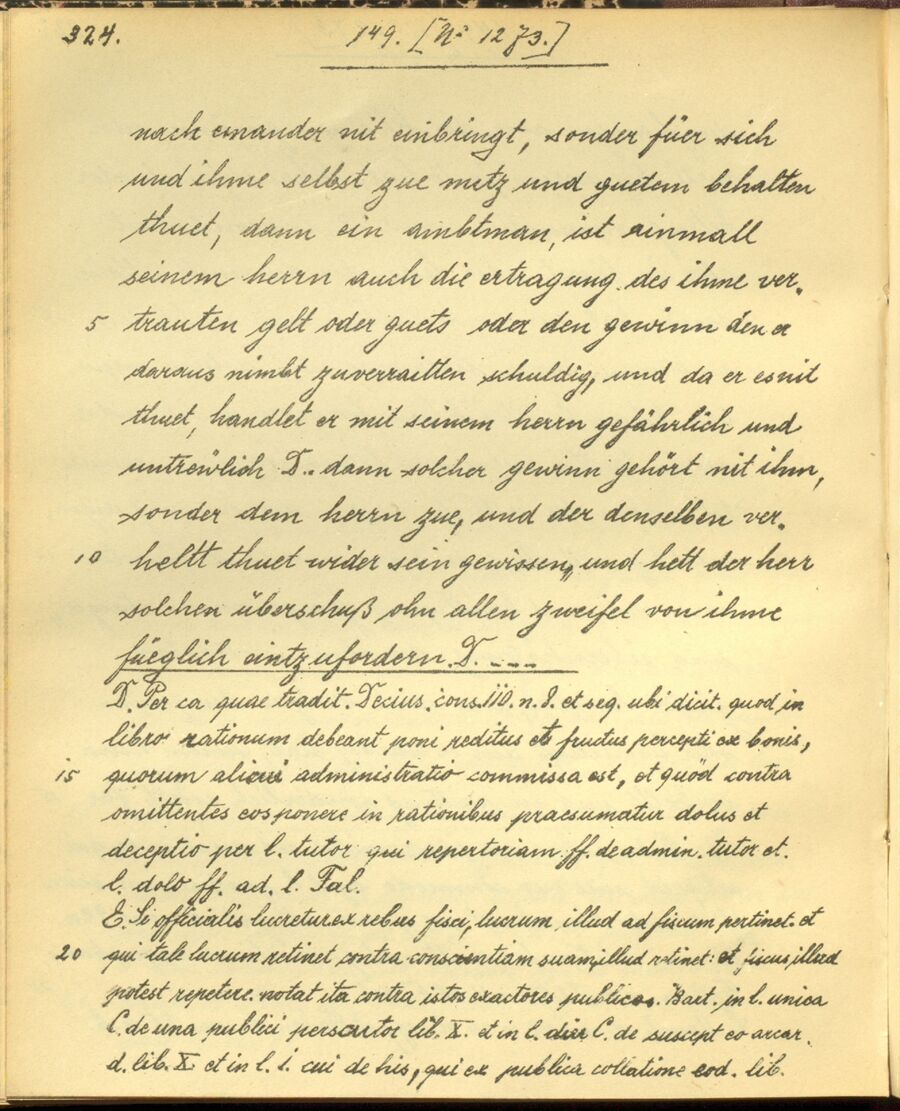 324. 149. [Nº 1273.]
nach einander nit einbringt, sonder füer sich
und ihme selbst zue nutz und guetem behalten
thuet, dann ein ambtman, ist einmall
seinem herrn auch die ertragung des ihme ver-
5 trauten gelt oder guets oder den gewinn den er
daraus nimbt zuverraitten schuldig, und da er es nit
thuet, handlet er mit seinem herrn gefährlich und
untreẅlich D.. dann solcher gewinn gehört nit ihm,
sonder dem herrn zue, und der denselben ver-
10 heltt thuet wider sein gewissen, und hett der herr
solchen überschuß ohn allen zweifel von ihme
füeglich eintzufordern. D. ----
D. Per ea quae tradit. Decius. cons. 110. n. 8. et seq. ubi dicit. quod in
libro rationum debeant poni reditus et fructus percepti ex bonis,
15 quorum alicui administratio commissa est, et quod contra
omittentes eos ponere in rationibus praesumatur dolus et
deceptio per l. tutor qui repertoriam ff. de admin. tutor et.
l. dolo ff. ad. l. Fal.
E. Si officialis lucretur ex rebus fisci, lucrum illud ad fiscum pertinet. et
20 qui tale lucrum retinet contra conscientiam suam, illud retinet: et fiscus illud
potest repetere. notat ita contra istos exactores publicos. Bart. in l. unica
C. de una publici lib. X. et in l. C. de suscept eo arcar.
d. lib. X. et in l. i. cui de his, qui ex publica collatione eod. lib.